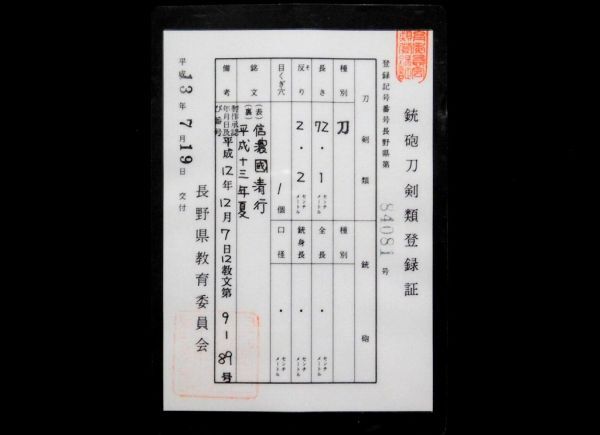 銃砲刀剣類登録証
登録記号番号長野県第 84081 号
刀剣類
種別 刀
長さ 72.1 センチメートル
反り そ 2.2 センチメートル
目くぎ穴 1個
銘文 (表) 信濃國清行
(裏) 平成十三年夏
銃砲
種別
全長 . センチメートル
銃身長 . センチメートル
口径 . センチメートル
備考 製作承認年月日及び番号 平成12年12月7日12教文第9-89号
平成13年7月19日交付
長野県教育委員会